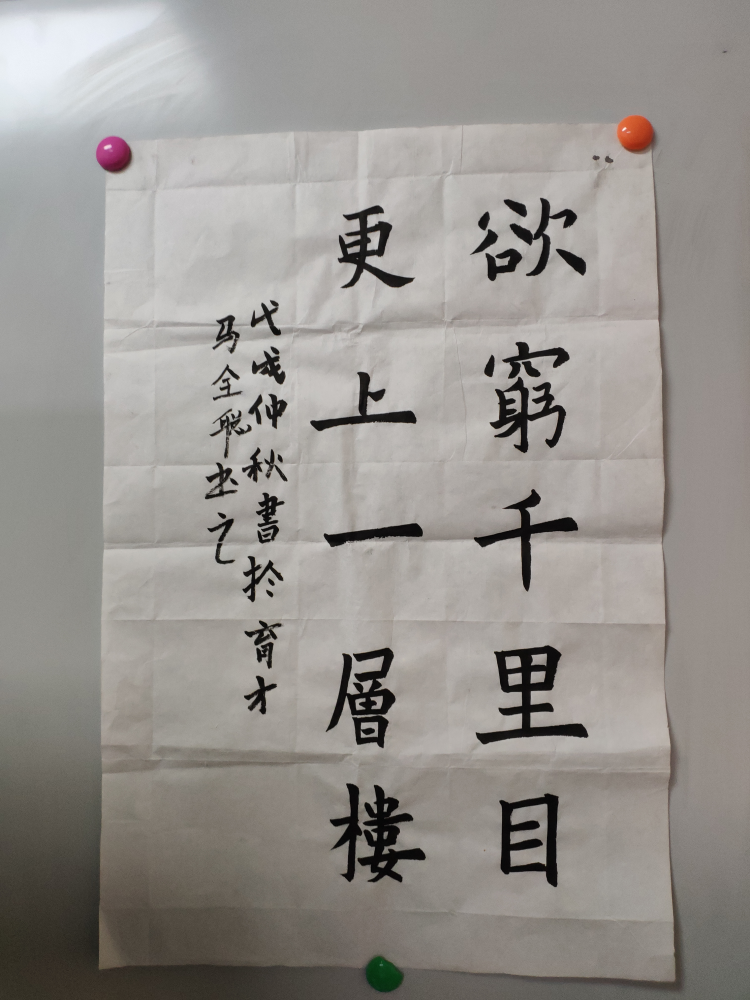 欲窮千里目
更上一層樓
戊戌仲秋書於育才
马全聪书之